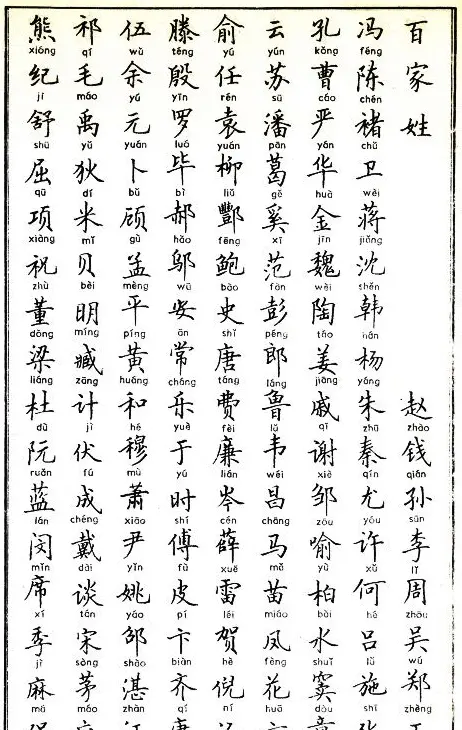 百家姓
赵钱孙李周吴郑
zhào qián sūn lǐ zhōu wú zhèng
冯陈褚卫蒋沈韩杨朱秦尤许何吕施
féng chén chǔ wèi jiǎng shěn hán yáng zhū qín yóu xǔ hé lǚ shī
孔曹严华金魏陶姜戚谢邹喻柏水窦
kǒng cáo yán huà jīn wèi táo jiāng qī xiè zōu yù bǎi shuǐ dòu
云苏潘葛奚范彭郎鲁韦昌马苗凤花
yún sū pān gě xī fàn péng láng lǔ wéi chāng mǎ miáo fèng huā
俞任袁柳酆鲍史唐费廉岑薛雷贺倪
yú rén yuán liǔ fēng bào shǐ táng fèi lián cén xuē léi hè ní
滕殷罗毕郝邬安常乐于时傅皮卞齐
téng yīn luó bì hǎo wū ān cháng yuè yú shí fù pí biàn qí
伍余元卜顾孟平黄和穆萧尹姚邵湛
wǔ yú yuán bǔ gù mèng píng huáng hé mù xiāo yǐn yáo shào zhàn
祁毛禹狄米贝明臧计伏成戴谈宋茅
qí máo yǔ dí mǐ bèi míng zāng jì fú chéng dài tán sòng máo
熊纪舒屈项祝董梁杜阮蓝闵席季麻
xióng jǐ shū qū xiàng zhù dǒng liáng dù ruǎn lán mǐn xí jì má